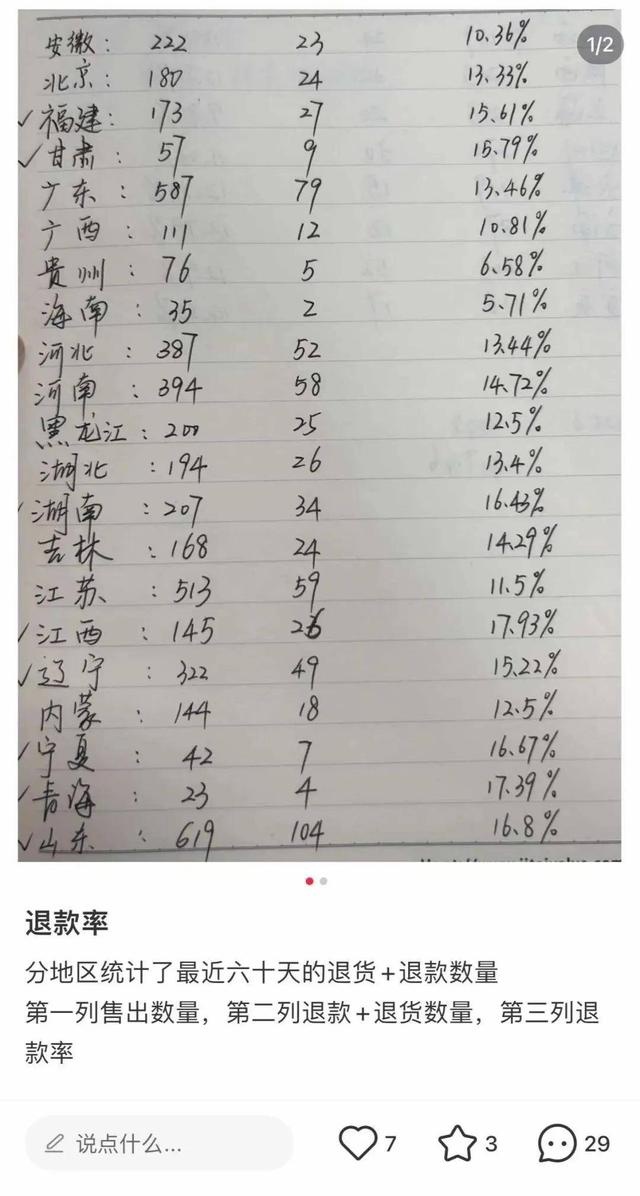 1/2
安徽: 222 23 10.36%
北京: 180 24 13.33%
✓福建: 173 27 15.61%
✓甘肃: 57 9 15.79%
广东: 587 79 13.46%
广西: 111 12 10.81%
贵州: 76 5 6.58%
海南: 35 2 5.71%
河北: 387 52 13.44%
河南: 394 58 14.72%
黑龙江: 200 25 12.5%
湖北: 194 26 13.4%
✓湖南: 207 34 16.43%
吉林: 168 24 14.29%
江苏: 513 59 11.5%
✓江西: 145 26 17.93%
✓辽宁: 322 49 15.22%
内蒙: 144 18 12.5%
✓宁夏: 42 7 16.67%
✓青海: 23 4 17.39%
✓山东: 619 104 16.8%
退款率
分地区统计了最近六十天的退货+退款数量
第一列售出数量，第二列退款+退货数量，第三列退
款率
说点什么... 7 3 29